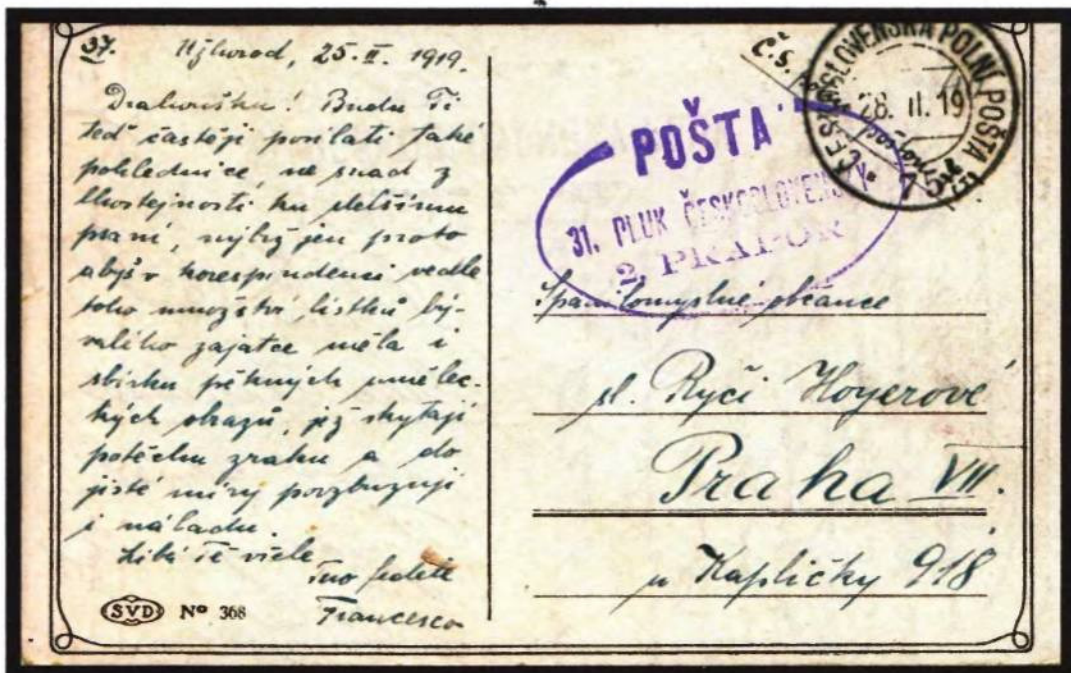 37.
Užhorod, 25. II. 1919.
Drahoušku! Budu Ti
teď častěji posílati také
pohlednice, ne snad z
lhostejnosti ku delšímu
psaní, nýbrž jen proto
abys v korespondenci vedle
toho množství lístků bý-
valého zajatce měla i
sbírku pěkných umělec-
kých obrazů, jež skytají
potěchu zraku a do
jisté míry povzbuzují
i náladu.
Líbá Tě vřele
Tuo fedele
Francesco
SVD Nº 368
Č.S.
ČESKOSLOVENSKÁ POLNÍ POŠTA
28. II. 19
POŠTA
31. PLUK ČESKOSLOVENSKÝ
2. PRAPOR
Spanilomyslné občance
sl. Ryči Hoyerové
Praha VII.
u Kapličky 918